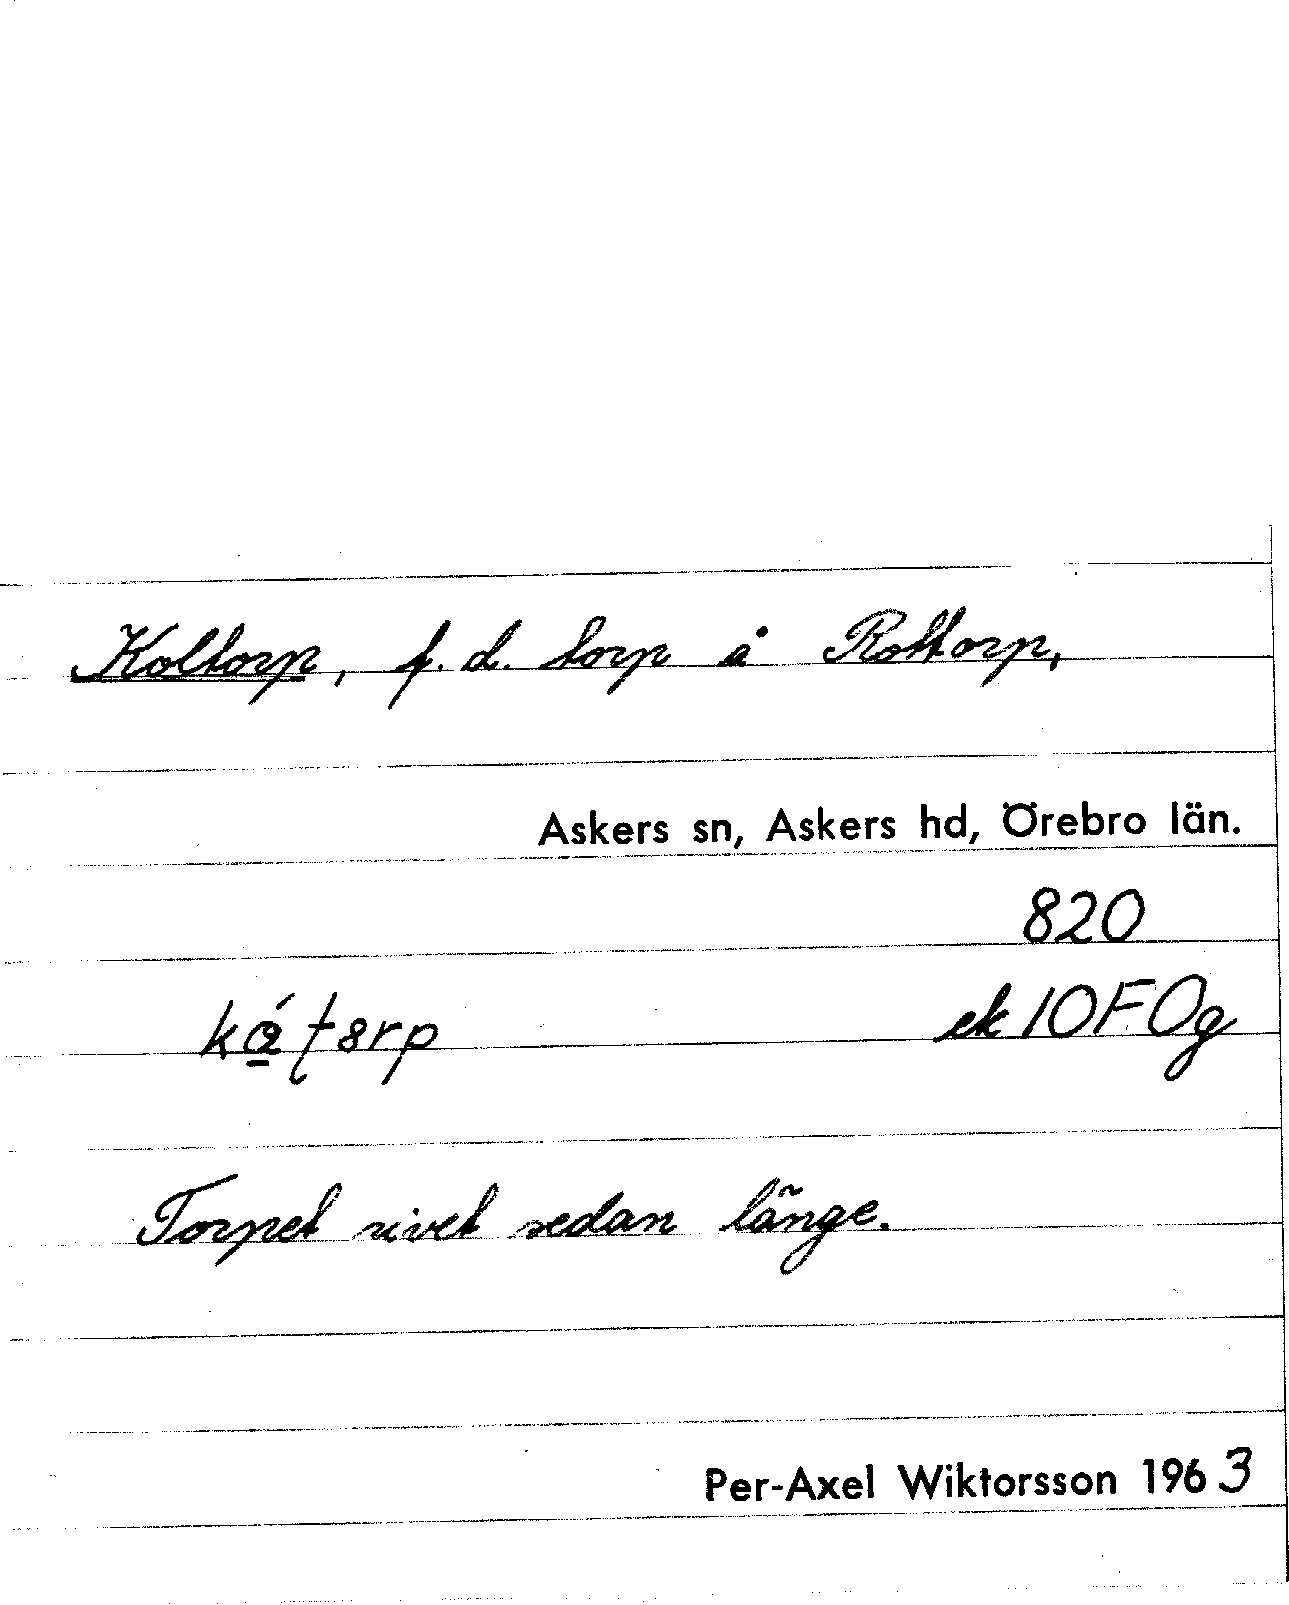 Koltorp, f.d. torp å Rottorp,
Askers sn, Askers hd, Örebro län.
820
ek 10F0g
Torpet rivet sedan länge.
Per-Axel Wiktorsson 1963